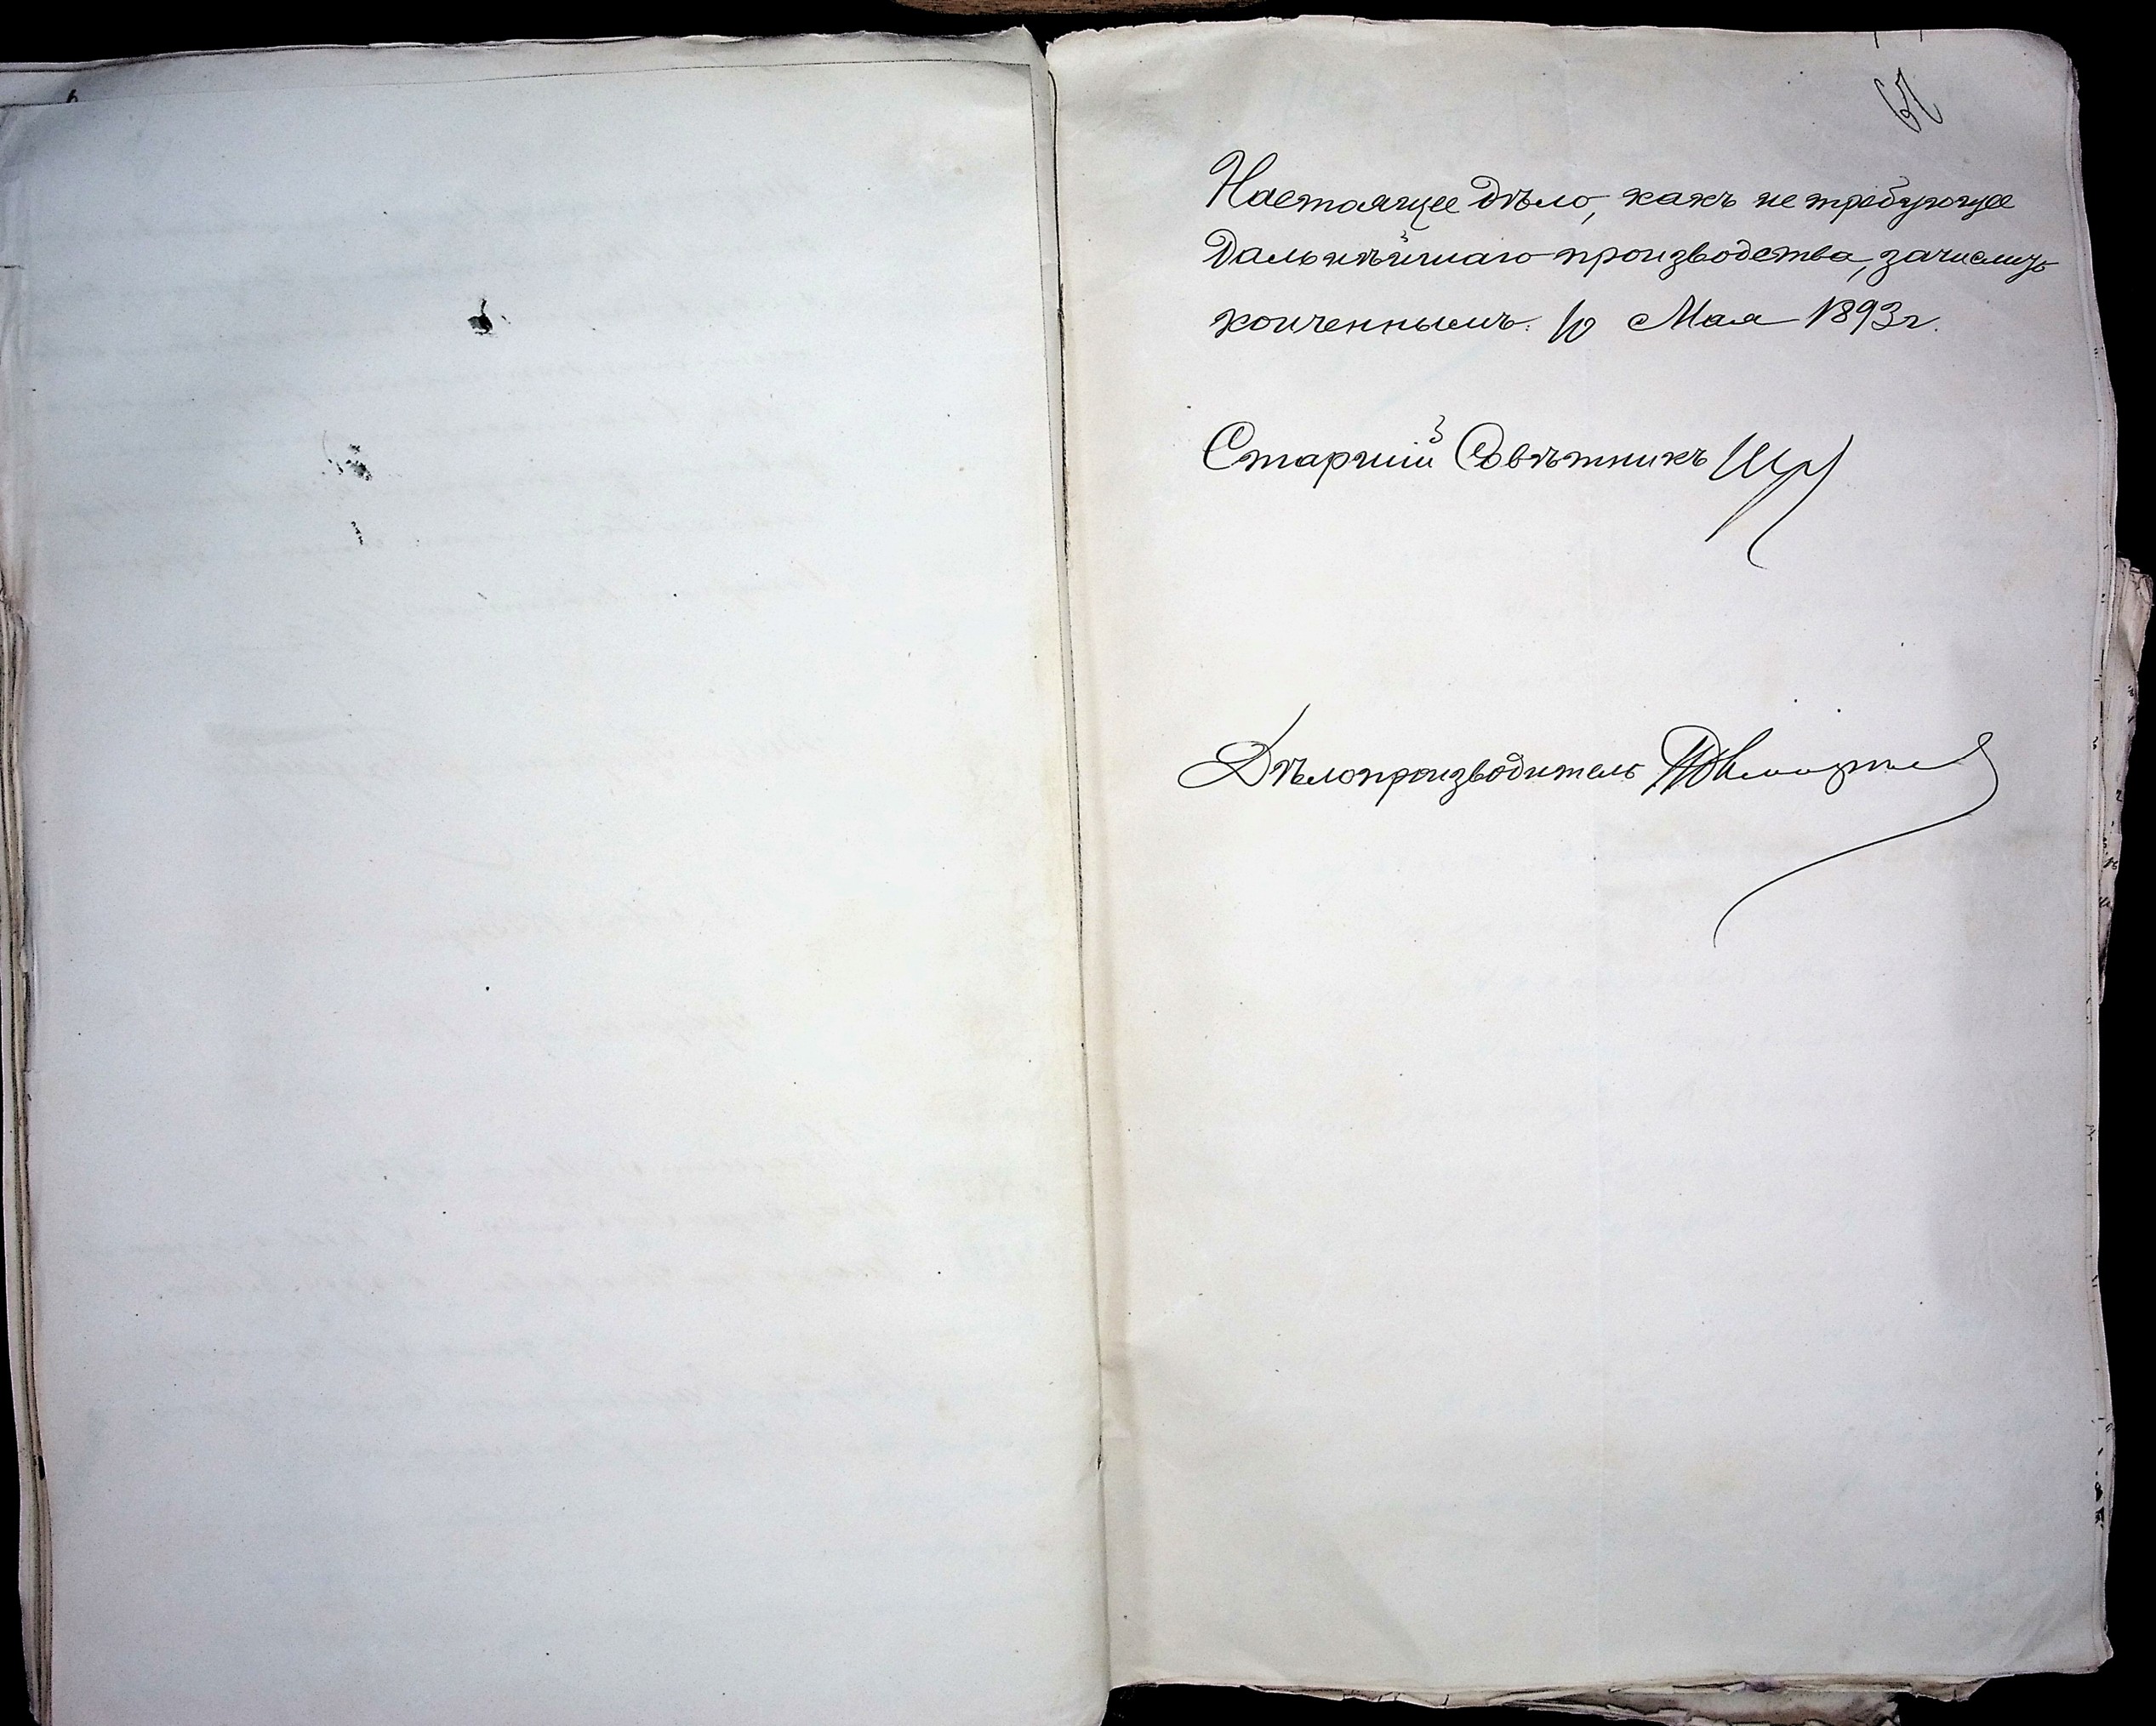 Настоящее дѣло, какъ не требующее
дальнѣйшаго производства, зачислить
конченнымъ. 10 Мая 1893 г.
Старшій Совѣтникъ
Дѣлопроизводитель